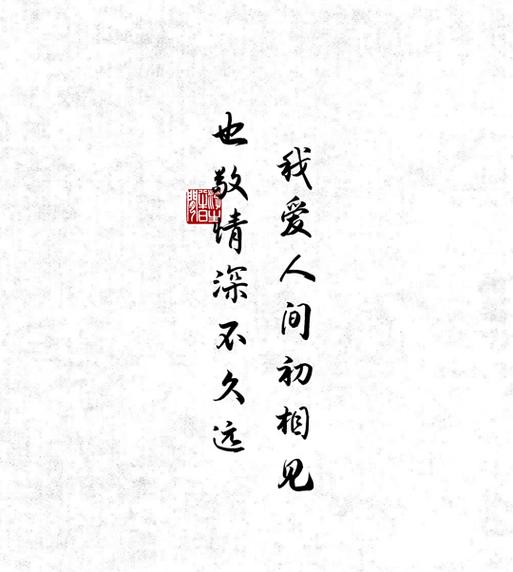 我爱人间初相见
也敬情深不久远